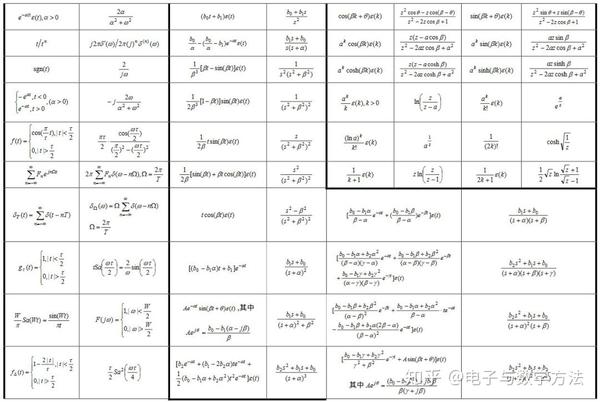 e^{-α|t|}, α>0   2α/(α²+ω²)   (b₀t+b₁)ε(t)   (b₀+b₁s)/s²   cos(βk+θ)ε(k)   (z²cosθ-z cos(β-θ))/(z²-2z cosβ+1)   sin(βk+θ)ε(k)   (z²sinθ+z sin(β-θ))/(z²-2z cosβ+1)
t/tⁿ   j2πδ'(ω)/2π(j)ⁿδ⁽ⁿ⁾(ω)   [b₀/α-(b₀/α-b₁)e^{-αt}]ε(t)   (b₁s+b₀)/(s(s+α))   a^k cos(βk)ε(k)   z(z-a cosβ)/(z²-2az cosβ+a²)   a^k sin(βk)ε(k)   az sinβ/(z²-2az cosβ+a²)
sgn(t)   2/(jω)   1/β³[βt-sin(βt)]ε(t)   1/(s²(s²+β²))   a^k cosh(βk)ε(k)   z(z-a coshβ)/(z²-2az coshβ+a²)   a^k sinh(βk)ε(k)   az sinhβ/(z²-2az coshβ+a²)
{-e^{αt}, t<0; e^{-αt}, t>0}, (α>0)   -j 2ω/(α²+ω²)   1/(s²+β²)²   a^k/k ε(k), k>0   ln(z/(z-a))   a^k/k! ε(k)
f(t)={cos(πt/τ), |t|<τ/2; 0, |t|>τ/2}   πτ/2 · cos(ωτ/2)/((π/2)²-(ωτ/2)²)   1/(2β) t sin(βt)ε(t)   s/(s²+β²)²   (ln a)^k/k! ε(k)   1/(2k)!   cosh√(1/z)
1/(2β)[sin(βt)+βt cos(βt)]ε(t)   s²/(s²+β²)²   1/(k+1) ε(k)   z ln(z/(z-1))   1/(2k+1) ε(k)   1/2 √z ln((√z+1)/(√z-1))
δ_T(t)=Σ_{n=-∞}^{∞} δ(t-nT)   δ_Ω(ω)=Ω Σ_{n=-∞}^{∞} δ(ω-nΩ)   Ω=2π/T   t cos(βt)ε(t)   (s²-β²)/(s²+β²)²   [(b₀-b₁α)/(β-α) e^{-αt}+(b₀-b₁β)/(α-β) e^{-βt}]ε(t)   (b₁s+b₀)/((s+α)(s+β))
g_τ(t)={1, |t|<τ/2; 0, |t|>τ/2}   τSa(ωτ/2)=2/ω sin(ωτ/2)   [(b₀-b₁α)t+b₁]e^{-αt}   (b₁s+b₀)/(s+α)²   [(b₀-b₁α+b₂α²)/((β-α)(γ-α)) e^{-αt}+(b₀-b₁β+b₂β²)/((α-β)(γ-β)) e^{-βt}
+(b₀-b₁γ+b₂γ²)/((α-γ)(β-γ)) e^{-γt}]ε(t)   (b₂s²+b₁s+b₀)/((s+α)(s+β)(s+γ))
W/π Sa(Wt)=sin(Wt)/(πt)   Ae^{-αt}sin(βt+θ)ε(t),其中
Ae^{jθ}=(b₀-b₁(α-jβ))/β   (b₁s+b₀)/((s+α)²+β²)   (b₂s²+b₁s+b₀)/((s+α)²(s+β))
f_Δ(t)={1-2|t|/τ, |t|<τ/2; 0, |t|>τ/2}   τ/2 Sa²(ωτ/4)   [b₂e^{-αt}+(b₁-2b₂α)te^{-αt}+
1/2(b₀-b₁α+b₂α²)t²e^{-αt}]ε(t)   (b₂s²+b₁s+b₀)/(s+α)³   [(b₀-b₁γ+b₂γ²)/(γ²+β²) e^{-γt}+A sin(βt+θ)]ε(t)
其中
知乎 @电子与数学方法